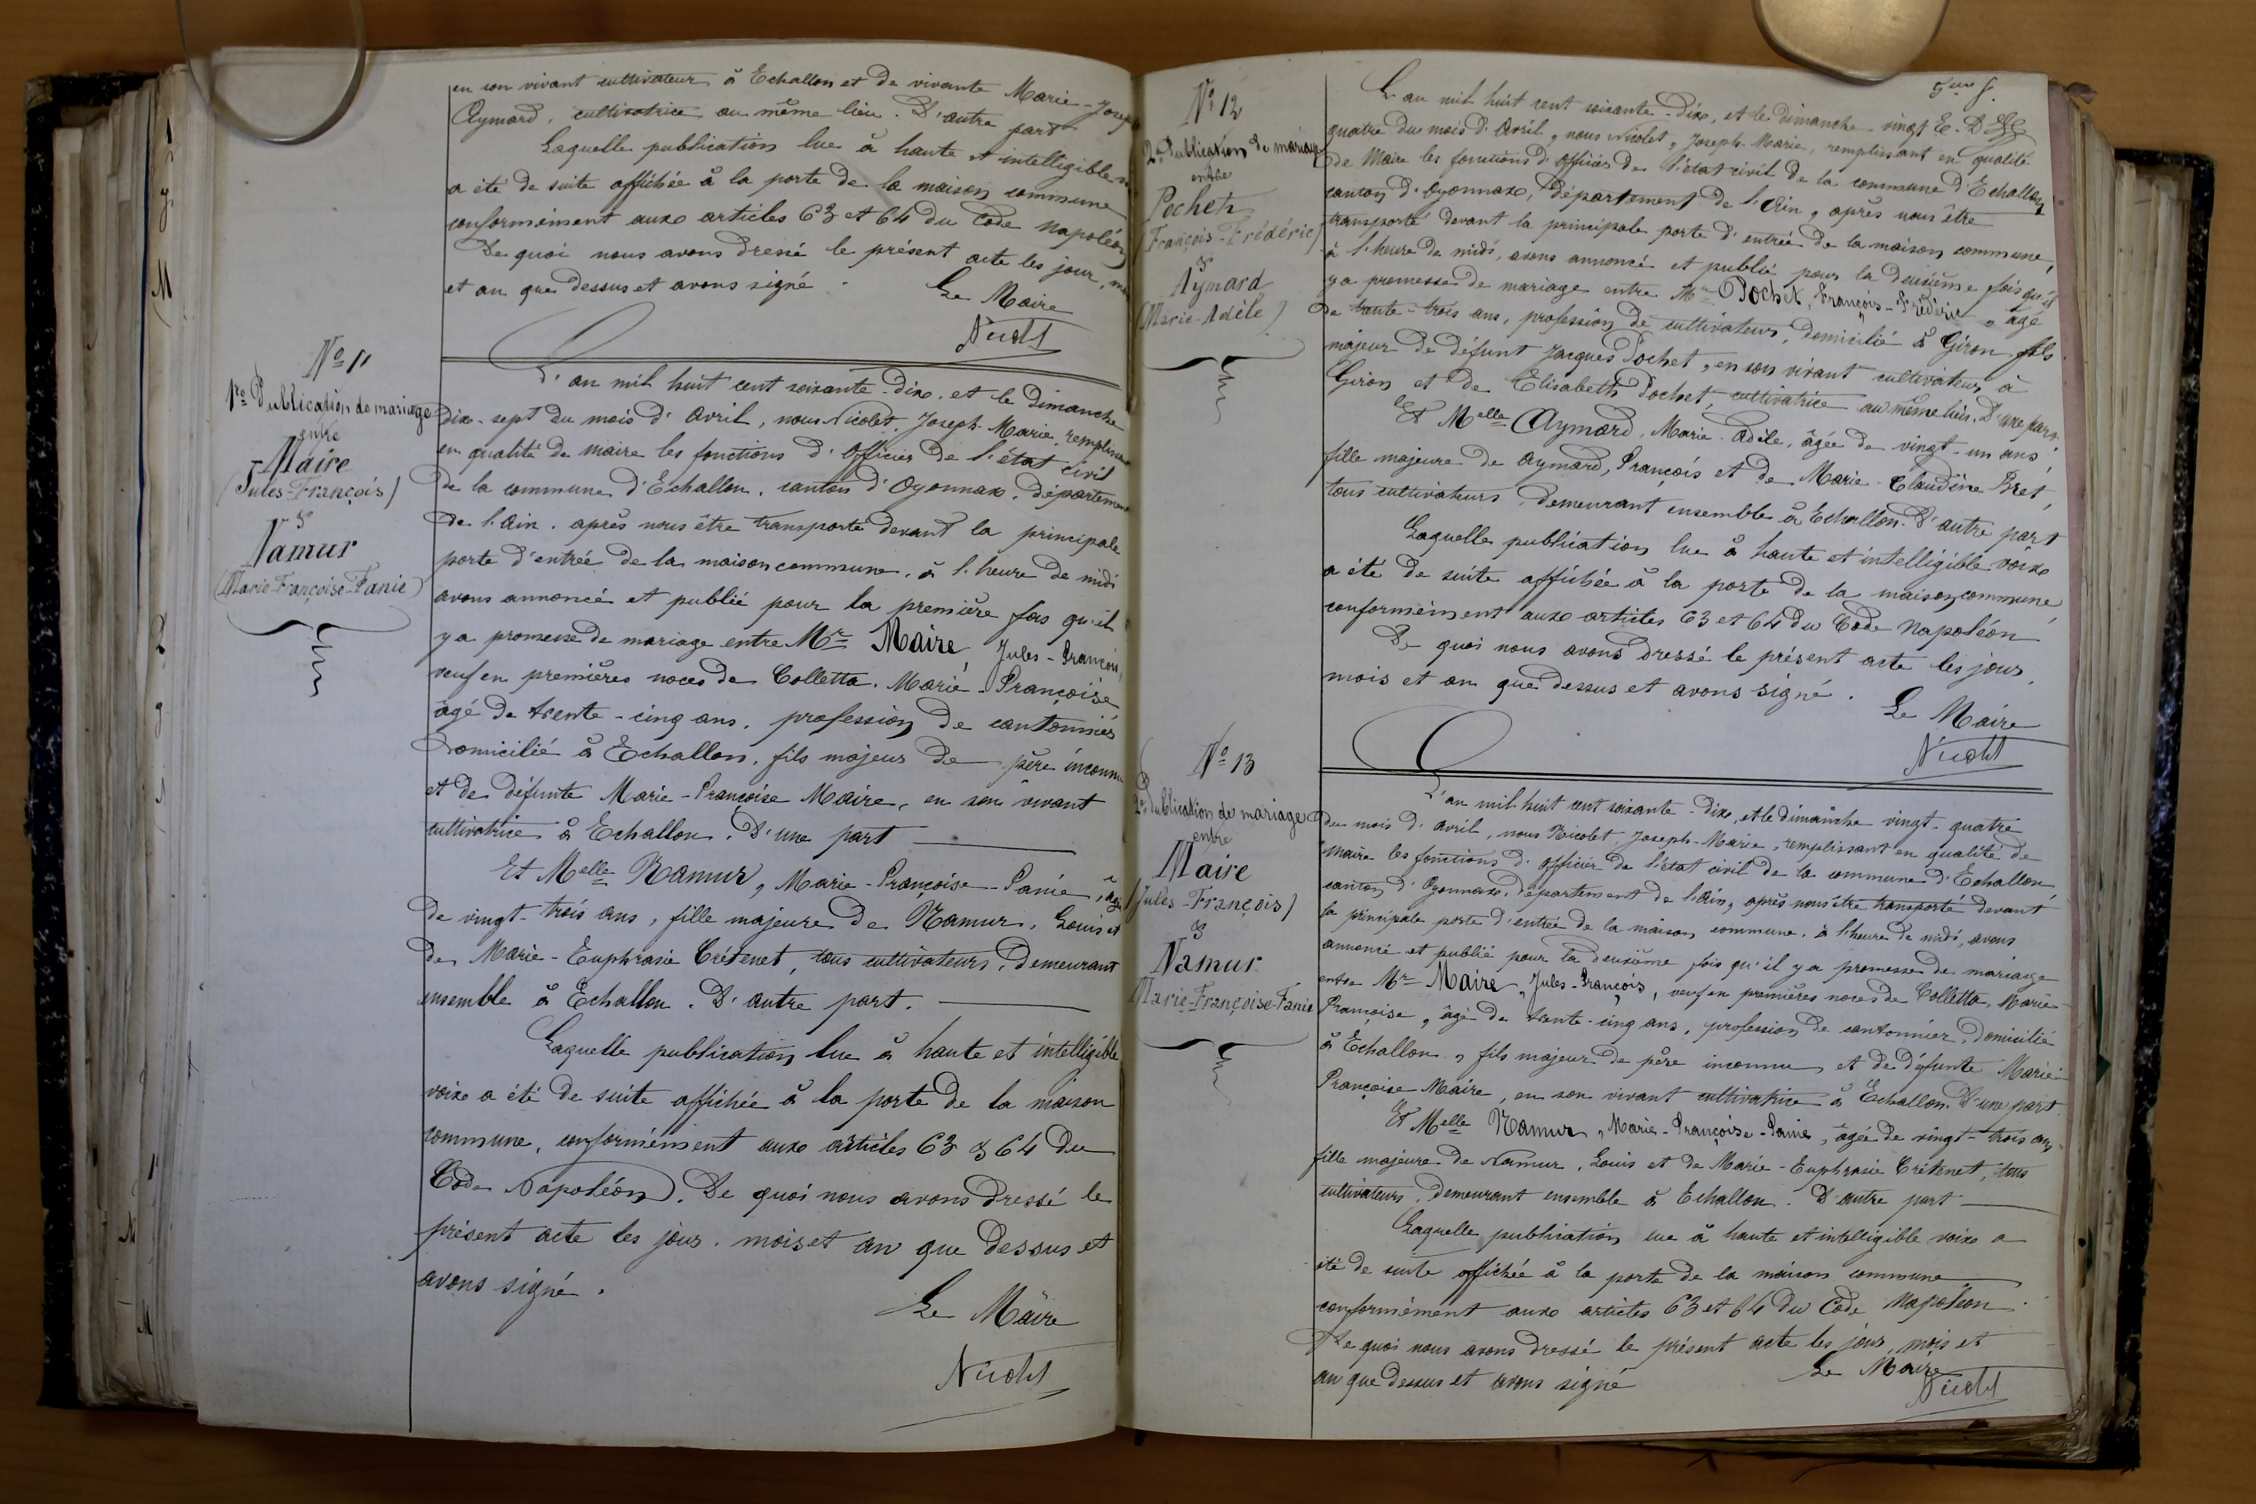 en son vivant cultivateur à Echallon et de vivante Marie-Josep
Aymard, cultivatrice au même lieu. D'autre part
Laquelle publication lue à haute et intelligible
a été de suite affichée à la porte de la maison commune
conformément aux articles 63 et 64 du Code Napoléon
De quoi nous avons dressé le présent acte les jour,
et an que dessus et avons signé.
Le Maire
Nicolet
No 11
1re Publication de mariage
entre
Maire
(Jules-François)
&
Namur
(Marie-Françoise-Fanie)
L'an mil huit cent soixante-dix, et le dimanche
dix-sept du mois d'Avril, nous Nicolet, Joseph-Marie, remplissant
en qualité de maire les fonctions d'officier de l'état civil
de la commune d'Echallon, canton d'Oyonnax, département
de l'Ain, après nous être transporté devant la principale
porte d'entrée de la maison commune, à l'heure de midi
avons annoncé et publié pour la première fois qu'il
y a promesse de mariage entre Mr Maire, Jules-François,
veuf en premières noces de Colletta, Marie-Françoise
âgé de trente-cinq ans, profession de cantonnier
domicilié à Echallon, fils majeur de père inconnu
et de défunte Marie-Françoise Maire, en son vivant
cultivatrice à Echallon. D'une part
Et Melle Namur, Marie-Françoise-Fanie, âgée
de vingt-trois ans, fille majeure de Namur, Louis et
de Marie-Euphrasie Crétenet, tous cultivateurs, demeurant
ensemble à Echallon. D'autre part.
Laquelle publication lue à haute et intelligible
voix a été de suite affichée à la porte de la maison
commune, conformément aux articles 63 & 64 du
Code Napoléon. De quoi nous avons dressé le
présent acte les jour, mois et an que dessus et
avons signé.
Le Maire
Nicolet
No 12
2e Publication de mariage
entre
Pochet
(François-Frédéric)
&
Aymard
(Marie-Adèle)
L'an mil huit cent soixante-dix, et le dimanche vingt
quatre du mois d'Avril, nous Nicolet, Joseph-Marie, remplissant en qualité
de Maire les fonctions d'officier de l'état civil de la commune d'Echallon
canton d'Oyonnax, département de l'Ain, après nous être
transporté devant la principale porte d'entrée de la maison commune,
à l'heure de midi, avons annoncé et publié pour la deuxième fois qu'il
y a promesse de mariage entre Mr Pochet, François-Frédéric, âgé
de trente-trois ans, profession de cultivateur, domicilié à Giron, fils
majeur de défunt Jacques Pochet, en son vivant cultivateur à
Giron et de Elisabeth Pochet, cultivatrice au même lieu. D'une part
Et Melle Aymard, Marie-Adèle, âgée de vingt-un ans,
fille majeure de Aymard, François et de Marie-Claudine Bret,
tous cultivateurs, demeurant ensemble à Echallon. D'autre part
Laquelle publication lue à haute et intelligible voix
a été de suite affichée à la porte de la maison commune
conformément aux articles 63 et 64 du Code Napoléon
De quoi nous avons dressé le présent acte les jour,
mois et an que dessus et avons signé.
Le Maire
Nicolet
No 13
2e Publication de mariage
entre
Maire
(Jules-François)
&
Namur
Marie-Françoise-Fanie
L'an mil huit cent soixante-dix, et le dimanche vingt-quatre
du mois d'avril, nous Nicolet, Joseph-Marie, remplissant en qualité de
maire les fonctions d'officier de l'état civil de la commune d'Echallon,
canton d'Oyonnax, département de l'Ain, après nous être transporté devant
la principale porte d'entrée de la maison commune, à l'heure de midi, avons
annoncé et publié pour la deuxième fois qu'il y a promesse de mariage
entre Mr Maire, Jules-François, veuf en premières noces de Colletta, Marie-
Françoise, âgé de trente-cinq ans, profession de cantonnier, domicilié
à Echallon, fils majeur de père inconnu et de défunte Marie-
Françoise Maire, en son vivant cultivatrice à Echallon. D'une part.
Et Melle Namur, Marie-Françoise-Fanie, âgée de vingt-trois ans,
fille majeure de Namur, Louis et de Marie-Euphrasie Crétenet, tous
cultivateurs, demeurant ensemble à Echallon. D'autre part
Laquelle publication lue à haute et intelligible voix a
été de suite affichée à la porte de la maison commune
conformément aux articles 63 et 64 du Code Napoléon.
De quoi nous avons dressé le présent acte les jour, mois et
an que dessus et avons signé
Le Maire
Nicolet